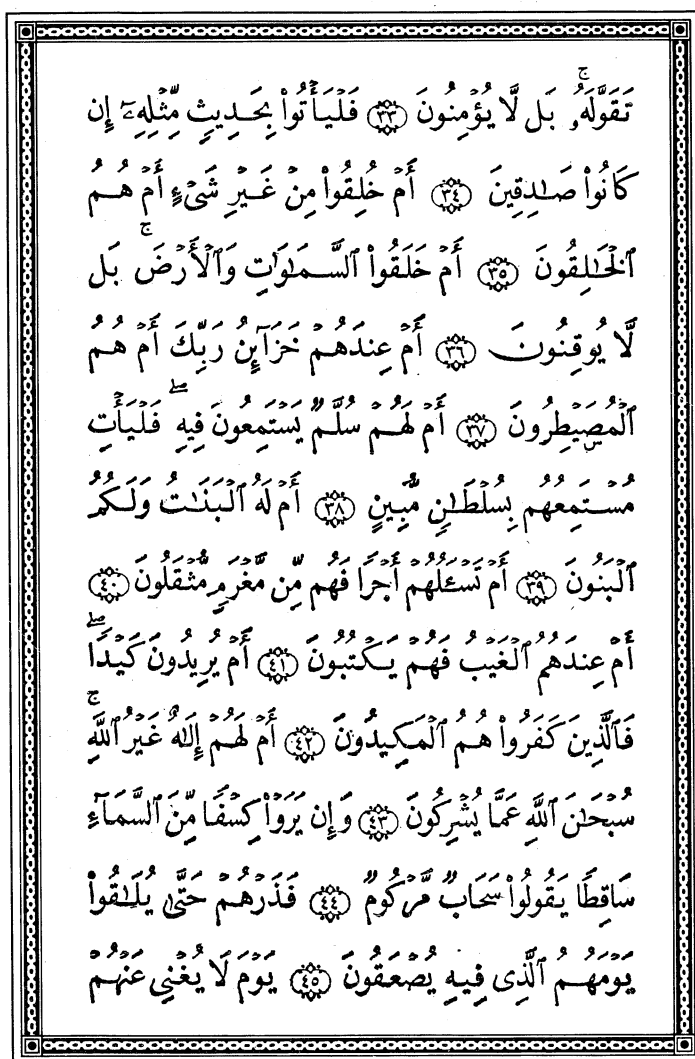 تَقَوَّلَهُۥۚ بَل لَّا يُؤْمِنُونَ ٣٣ فَلْيَأْتُوا۟ بِحَدِيثٍ مِّثْلِهِۦٓ إِن
كَانُوا۟ صَـٰدِقِينَ ٣٤ أَمْ خُلِقُوا۟ مِنْ غَيْرِ شَىْءٍ أَمْ هُمُ
ٱلْخَـٰلِقُونَ ٣٥ أَمْ خَلَقُوا۟ ٱلسَّمَـٰوَٰتِ وَٱلْأَرْضَۚ بَل
لَّا يُوقِنُونَ ٣٦ أَمْ عِندَهُمْ خَزَآئِنُ رَبِّكَ أَمْ هُمُ
ٱلْمُصَۣيْطِرُونَ ٣٧ أَمْ لَهُمْ سُلَّمٌ يَسْتَمِعُونَ فِيهِۖ فَلْيَأْتِ
مُسْتَمِعُهُم بِسُلْطَـٰنٍ مُّبِينٍ ٣٨ أَمْ لَهُ ٱلْبَنَـٰتُ وَلَكُمُ
ٱلْبَنُونَ ٣٩ أَمْ تَسْـَٔلُهُمْ أَجْرًا فَهُم مِّن مَّغْرَمٍ مُّثْقَلُونَ ٤٠
أَمْ عِندَهُمُ ٱلْغَيْبُ فَهُمْ يَكْتُبُونَ ٤١ أَمْ يُرِيدُونَ كَيْدًاۖ
فَٱلَّذِينَ كَفَرُوا۟ هُمُ ٱلْمَكِيدُونَ ٤٢ أَمْ لَهُمْ إِلَـٰهٌ غَيْرُ ٱللَّهِۚ
سُبْحَـٰنَ ٱللَّهِ عَمَّا يُشْرِكُونَ ٤٣ وَإِن يَرَوْا۟ كِسْفًا مِّنَ ٱلسَّمَآءِ
سَاقِطًا يَقُولُوا۟ سَحَابٌ مَّرْكُومٌ ٤٤ فَذَرْهُمْ حَتَّىٰ يُلَـٰقُوا۟
يَوْمَهُمُ ٱلَّذِى فِيهِ يُصْعَقُونَ ٤٥ يَوْمَ لَا يُغْنِى عَنْهُمْ